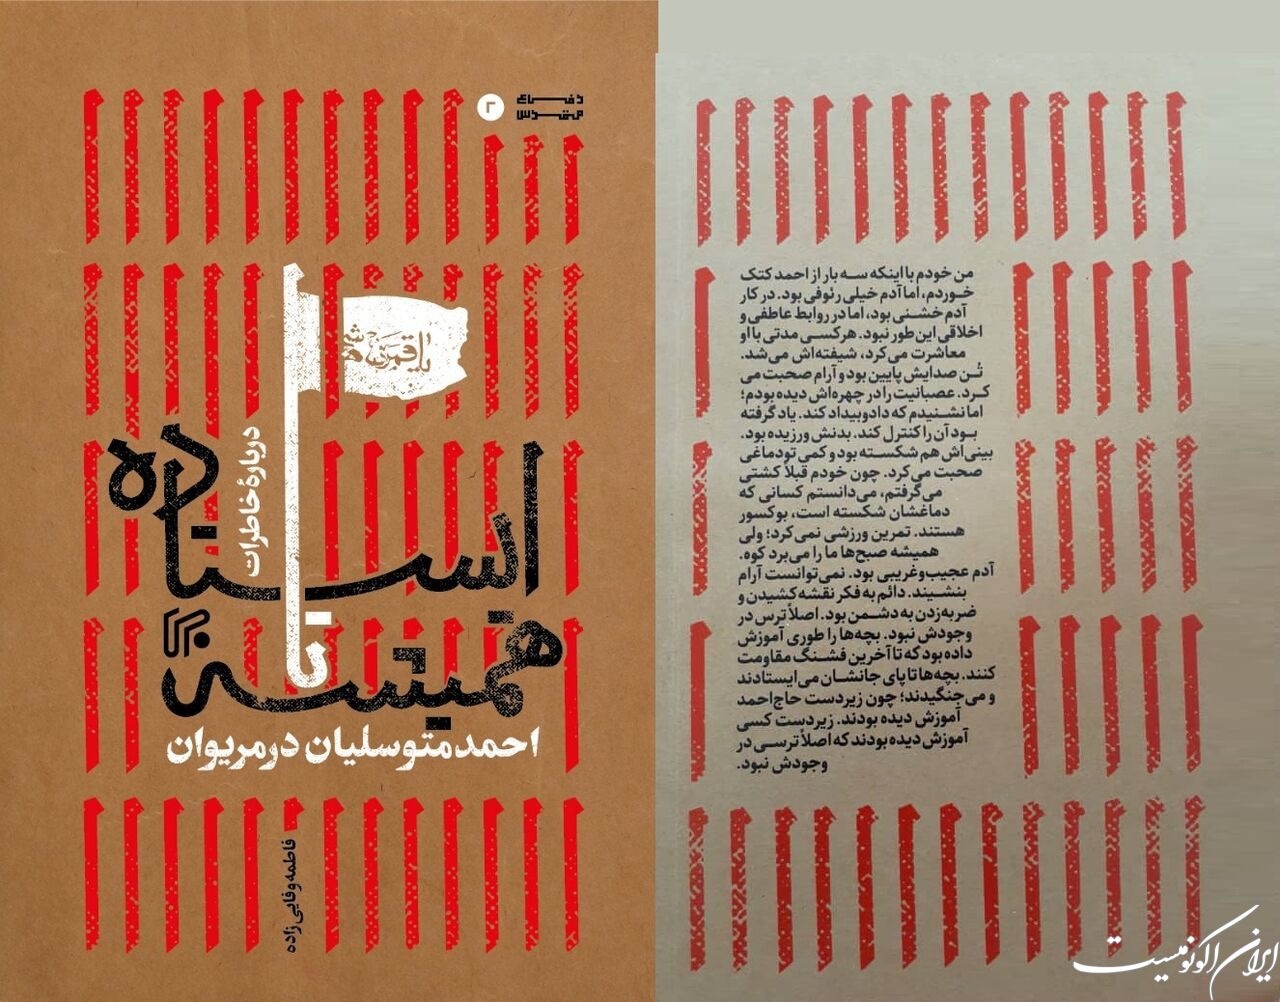 دفاع
مقدس
۲
یا قمر بنی هاشم
ایستاده
تا
همیشه
دربارهٔ خاطرات
احمد متوسلیان در مریوان
فاطمه وفایی زاده
من خودم با اینکه سه بار از احمد کتک
خوردم، اما آدم خیلی رئوفی بود. در کار
آدم خشنی بود، اما در روابط عاطفی و
اخلاقی این طور نبود. هر کسی مدتی با او
معاشرت می کرد، شیفته اش می شد.
تُن صدایش پایین بود و آرام صحبت می
کرد. عصبانیت را در چهره اش دیده بودم؛
اما نشنیدم که داد و بیداد کند. یاد گرفته
بود آن را کنترل کند. بدنش ورزیده بود.
بینی اش هم شکسته بود و کمی تودماغی
صحبت می کرد. چون خودم قبلاً کشتی
می گرفتم، می دانستم کسانی که
دماغشان شکسته است، بوکسور
هستند. تمرین ورزشی نمی کرد؛ ولی
همیشه صبح ها ما را می برد کوه.
آدم عجیب و غریبی بود. نمی توانست آرام
بنشیند. دائم به فکر نقشه کشیدن و
ضربه زدن به دشمن بود. اصلاً ترس در
وجودش نبود. بچه ها را طوری آموزش
داده بود که تا آخرین فشنگ مقاومت
کنند. بچه ها تا پای جانشان می ایستادند
و می جنگیدند؛ چون زیردست حاج احمد
آموزش دیده بودند. زیردست کسی
آموزش دیده بودند که اصلاً ترسی در
وجودش نبود.
ایران اکونومیست